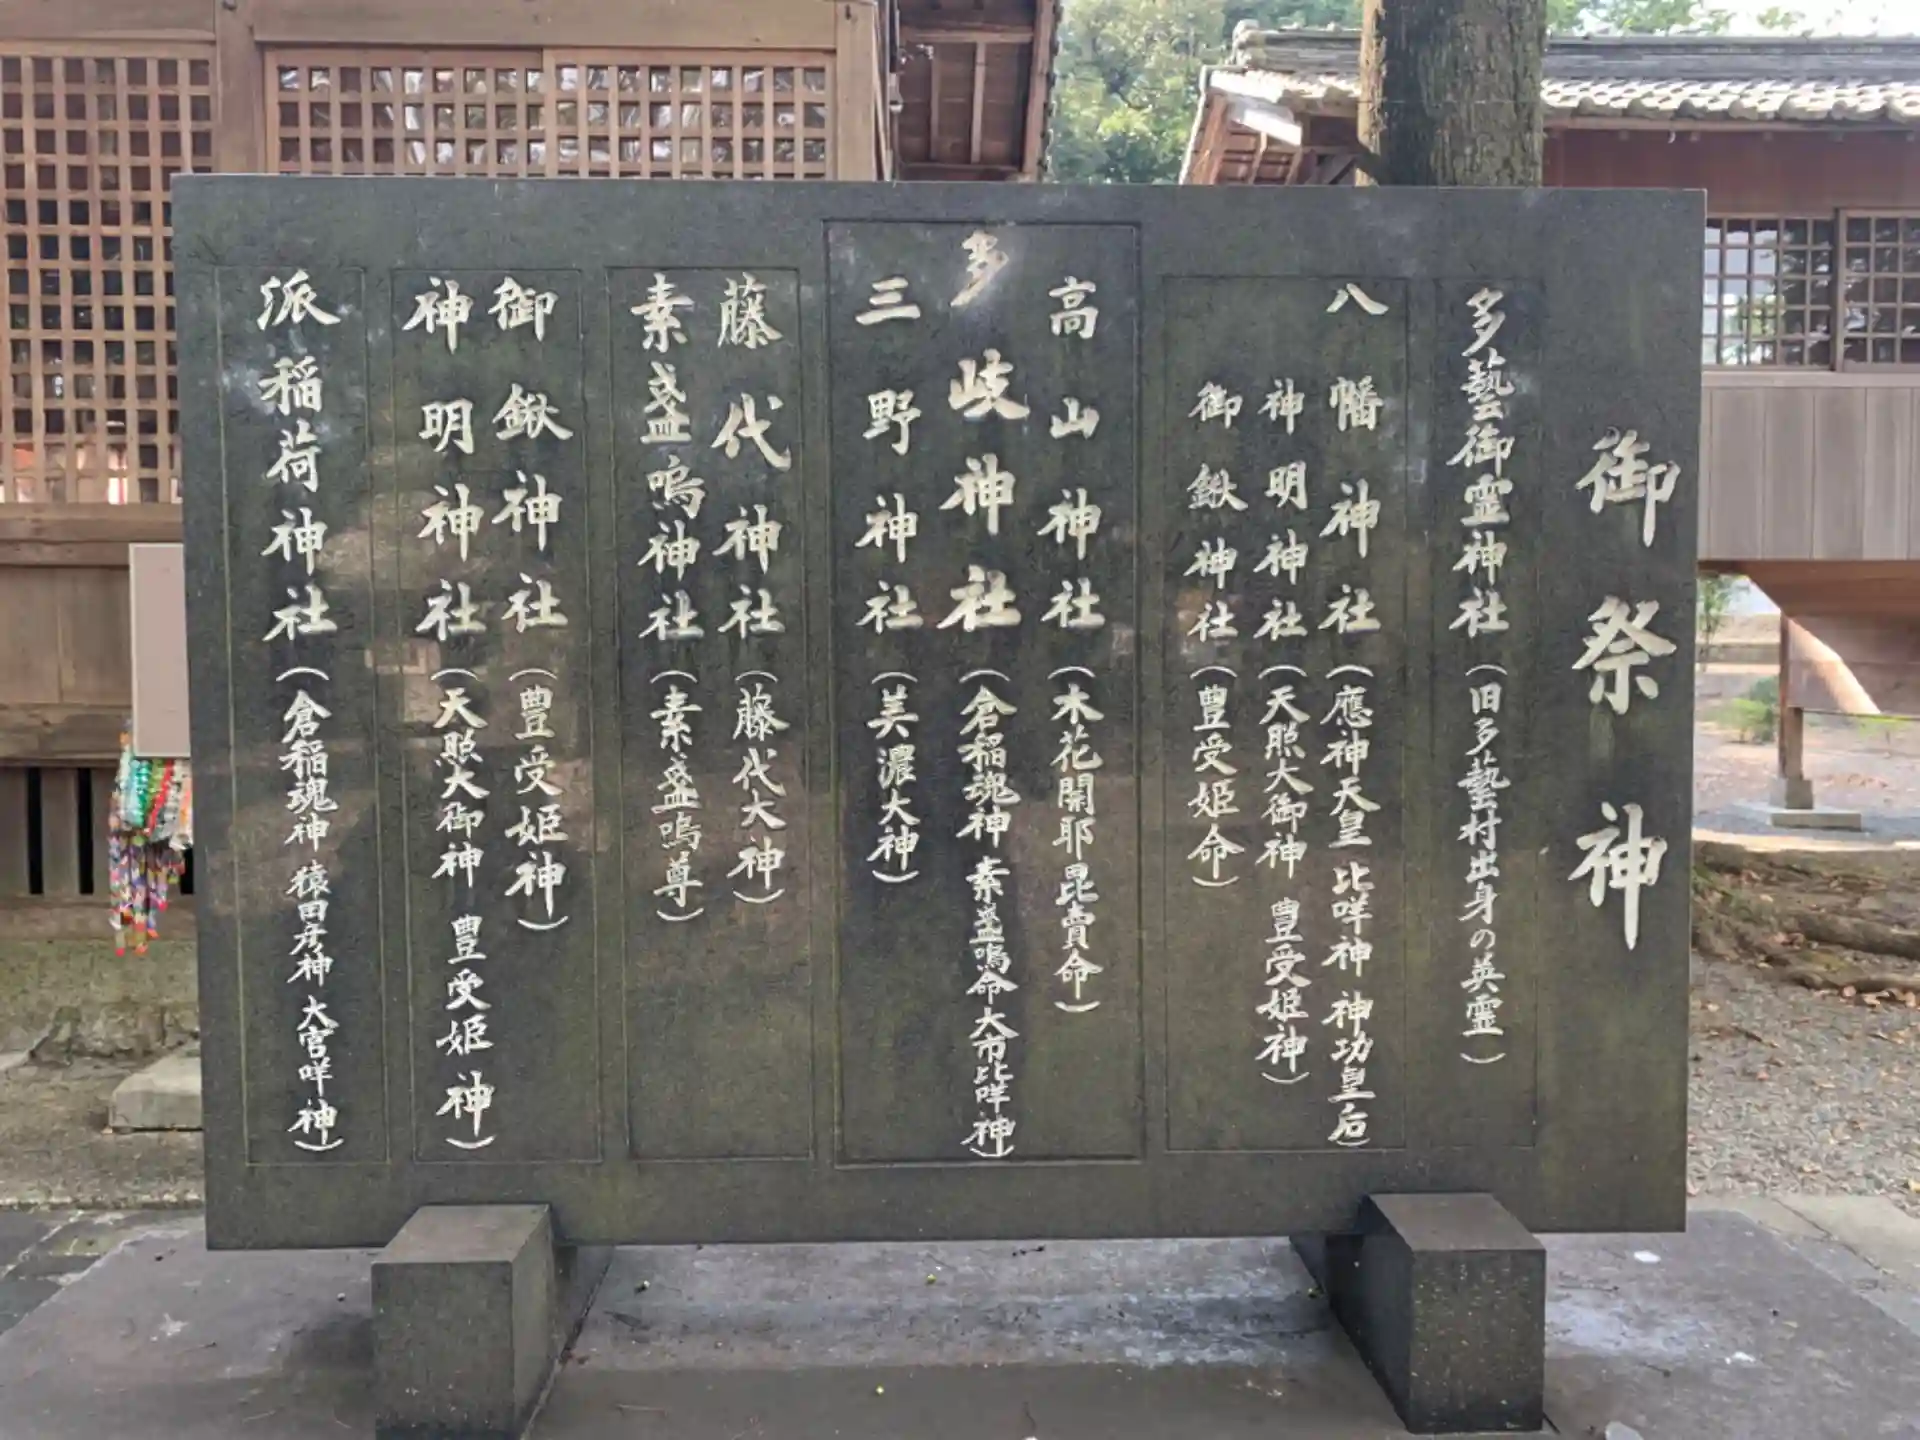 御祭神
多藝御霊神社（旧多藝村出身の英霊）
八幡神社（應神天皇 比咩神 神功皇后）
神明神社（天照大御神 豊受姫神）
御鍬神社（豊受姫命）
高山神社（木花開耶毘賣命）
多岐神社（倉稲魂神 素盞嗚命 大市比咩神）
三野神社（美濃大神）
藤代神社（藤代大神）
素盞嗚神社（素盞嗚尊）
御鍬神社（豊受姫神）
神明神社（天照大御神 豊受姫神）
派稲荷神社（倉稲魂神 猿田彦神 大宮咩神）